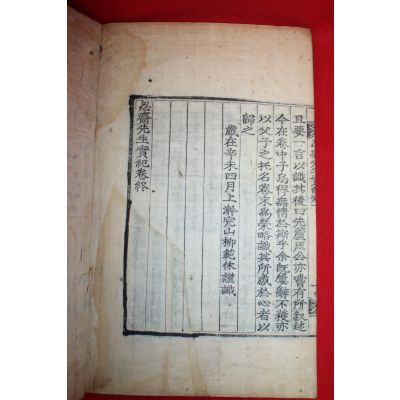 且要一言以識其後曰先麗凮公亦嘗有所叙述
今在卷中子烏得無情於斯乎余旣屢辭不獲亦
以父子之托名卷末爲榮略識其所感於心者以
歸之
歲在辛未四月上澣完山柳範休謹識
忍齋先生實紀卷終